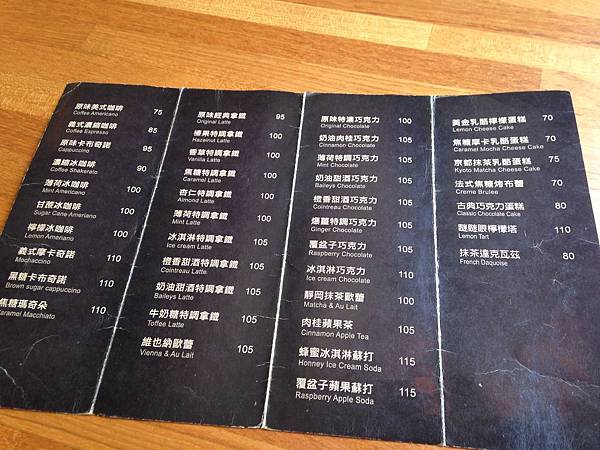 原味美式咖啡 75
Coffee Americano
義式濃縮咖啡 85
Coffee Espresso
原味卡布奇諾 95
Cappuccino
濃縮冰咖啡 90
Coffee Shakerato
薄荷冰咖啡 100
Mint Americano
甘蔗冰咖啡 100
Sugar Cane Ameriano
檸檬冰咖啡 100
Lemon Ameriano
義式摩卡奇諾 110
Mochaccino
黑糖卡布奇諾 110
Brown sugar cappuccino
焦糖瑪奇朵 110
Caramel Macchiato
原味經典拿鐵 95
Original Latte
榛果特調拿鐵 100
Hazelnut Latte
香草特調拿鐵 100
Vanilla Latte
焦糖特調拿鐵 100
Caramel Latte
杏仁特調拿鐵 100
Almond Latte
薄荷特調拿鐵 100
Mint Latte
冰淇淋特調拿鐵 105
Ice cream Latte
橙香甜酒特調拿鐵 105
Cointreau Latte
奶油甜酒特調拿鐵 105
Baileys Latte
牛奶糖特調拿鐵 105
Toffee Latte
維也納歐蕾 105
Vienna & Au Lait
原味特濃巧克力 100
Original Chocolate
奶油肉桂巧克力 105
Cinnamon Chocolate
薄荷特調巧克力 105
Mint Chocolate
奶油甜酒巧克力 105
Baileys Chocolate
橙香甜酒巧克力 105
Cointreau Chocolate
爆薑特調巧克力 105
Ginger Chocolate
覆盆子巧克力 105
Raspberry Chocolate
冰淇淋巧克力 110
Ice cream Chocolate
靜岡抹茶歐蕾 100
Matcha & Au Lait
肉桂蘋果茶 105
Cinnamon Apple Tea
蜂蜜冰淇淋蘇打 115
Honney Ice Cream Soda
覆盆子蘋果蘇打 115
Raspberry Apple Soda
黃金乳酪檸檬蛋糕 70
Lemon Cheese Cake
焦糖摩卡乳酪蛋糕 70
Caramel Mocha Cheese Cake
京都抹茶乳酪蛋糕 75
Kyoto Matcha Cheese Cake
法式焦糖烤布蕾 70
Creme Brulee
古典巧克力蛋糕 80
Classic Chocolate Cake
瞇瞇眼檸檬塔 110
Lemon Tart
抹茶達克瓦茲 80
French Daquoise